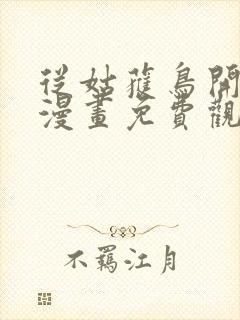 從姑蒦鳥開
漫畫免費觀
不羈江月